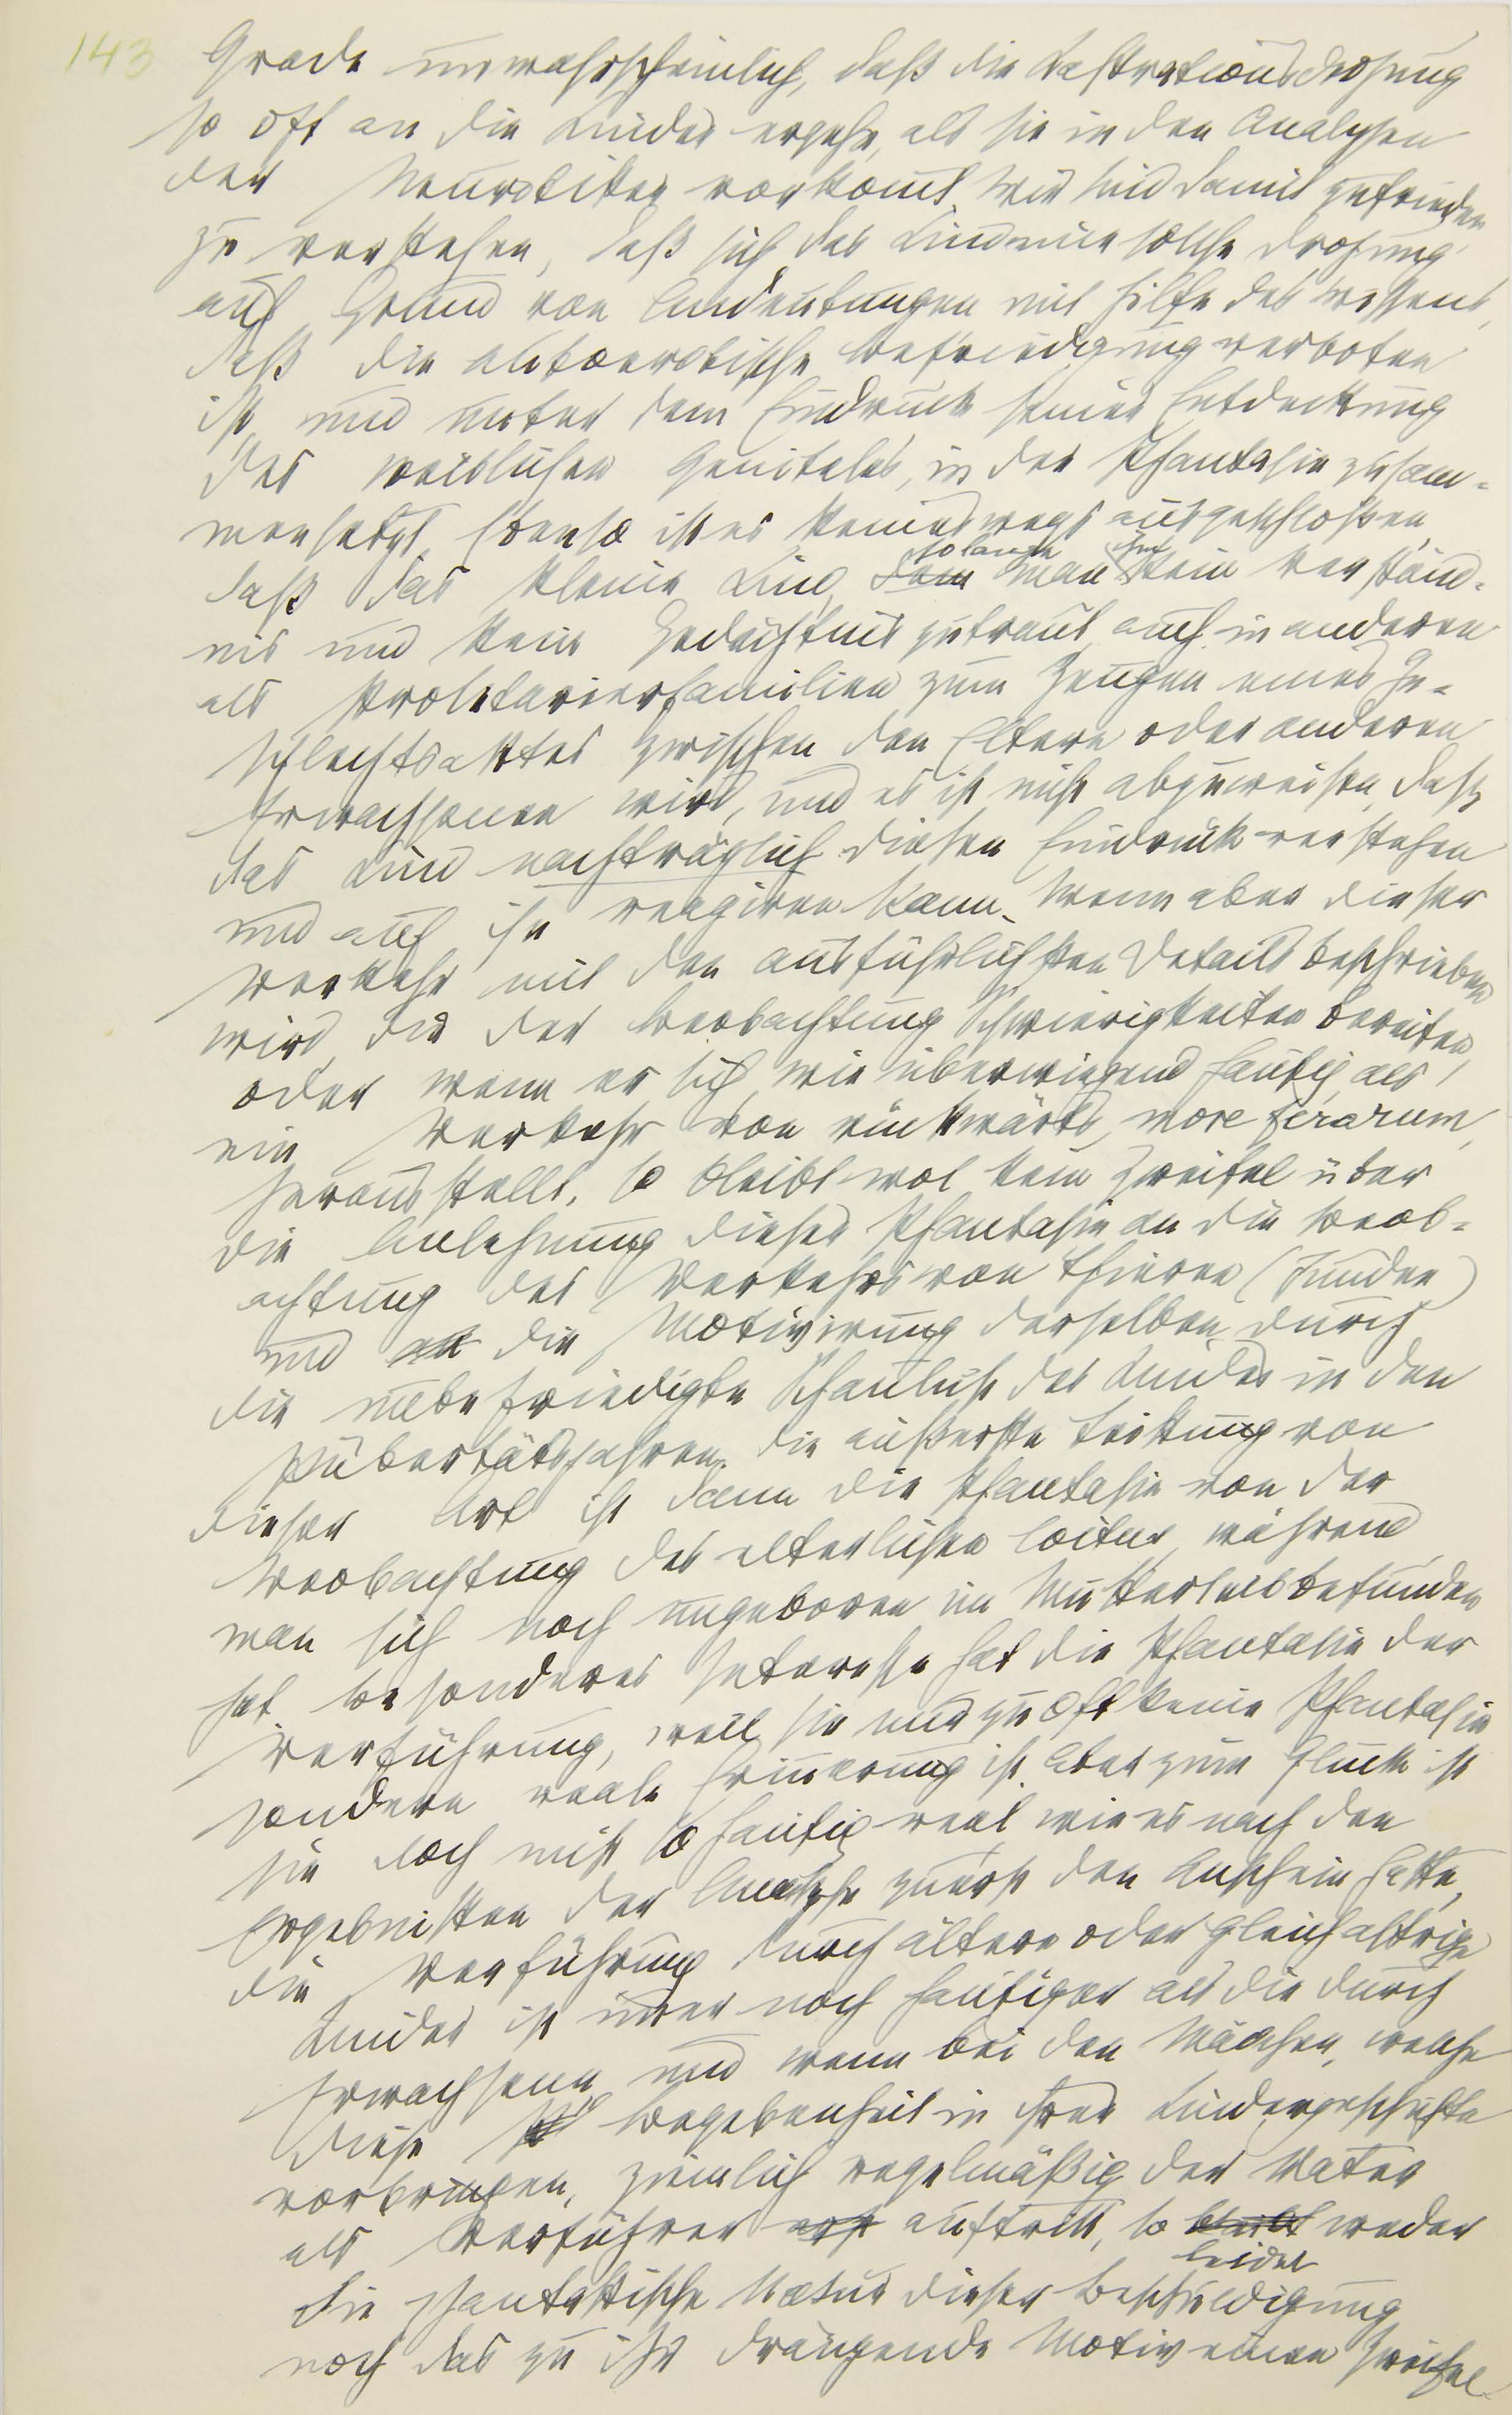 143
Grade unwahrscheinlich, daß die Kastrationsdrohung
so oft an die Kinder ergehe, als sie in den Analysen
der Neurotiker vorkomt. Wir sind damit zufrieden
zu verstehen, daß sich das Kind eine solche Drohung
auf Grund von Andeutungen mit Hilfe des Wissens,
daß die autoerotische Befriedigung verboten
ist, und unter dem Eindruck seiner Entdeckung
des weiblichen Genitales, in der Phantasie zusam-
mensetzt. Ebenso ist es keineswegs ausgeschloßen,
daß das kleine Kind, dem solange man ihm kein Verständ-
nis und kein Gedächtnis zutraut, auch in anderen
als Proletarierfamilien zum Zeugen eines Ge-
schlechtsaktes zwischen den Eltern oder anderen
Erwachsenen wird, und es ist nicht abzuweisen, daß
das Kind nachträglich diesen Eindruck verstehen
und auf ihn reagiren kann. Wenn aber dieser
Verkehr mit den ausführlichsten Details beschrieben
wird, die der Beobachtung Schwierigkeiten bereiten,
oder wenn er sich, wie überwiegend häufig, als
ein Verkehr von rückwärts, more ferarum,
herausstellt, so bleibt wol kein Zweifel über
die Anlehnung dieser Phantasie an die Beob-
achtung des Verkehrs von Thieren (Hunden)
und an die Motivirung derselben durch
die unbefriedigte Schaulust des Kindes in den
Pubertätsjahren. Die äußerste Leistung von
dieser Art ist dann die Phantasie von der
Beobachtung des elterlichen Coitus, während
man sich noch ungeboren im Mutterleib befunden
hat. Besonderes Interesse hat die Phantasie der
Verführung, weil sie nur zu oft keine Phantasie
sondern reale Erinnerung ist. Aber zum Glück ist
sie doch nicht so häufig real wie es nach den
Ergebnissen der Analyse zuerst den Anschein hatte,
die Verführung durch ältere oder gleichaltrige
Kinder ist immer noch häufiger als die durch
Erwachsene, und wenn bei den Mädchen, welche
diese Begebenheit in ihrer Kindergeschichte
vorbringen, ziemlich regelmäßig der Vater
als Verführer erst auftritt, so bleibt leidet weder
die phantastische Natur dieser Beschuldigung
noch das zu ihr drängende Motiv einen Zweifel